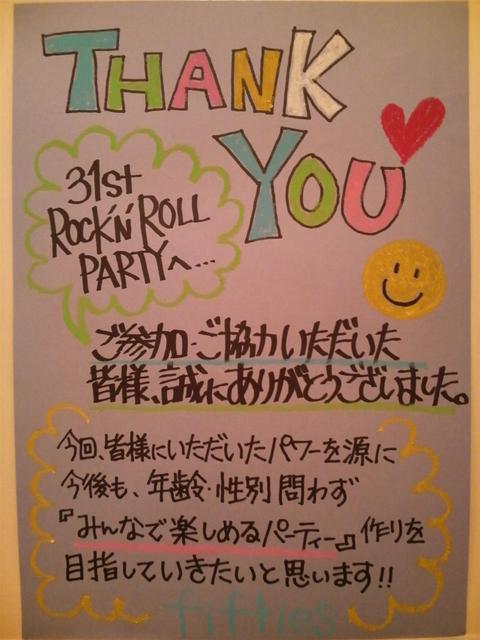 THANK
YOU
31st
ROCK'N'ROLL
PARTYへ...
ご参加ご協力いただいた
皆様、誠にありがとうございました。
今回、皆様にいただいたパワーを源に
今後も、年齢・性別問わず
『みんなで楽しめるパーティー』作りを
目指していきたいと思います!!
fifties